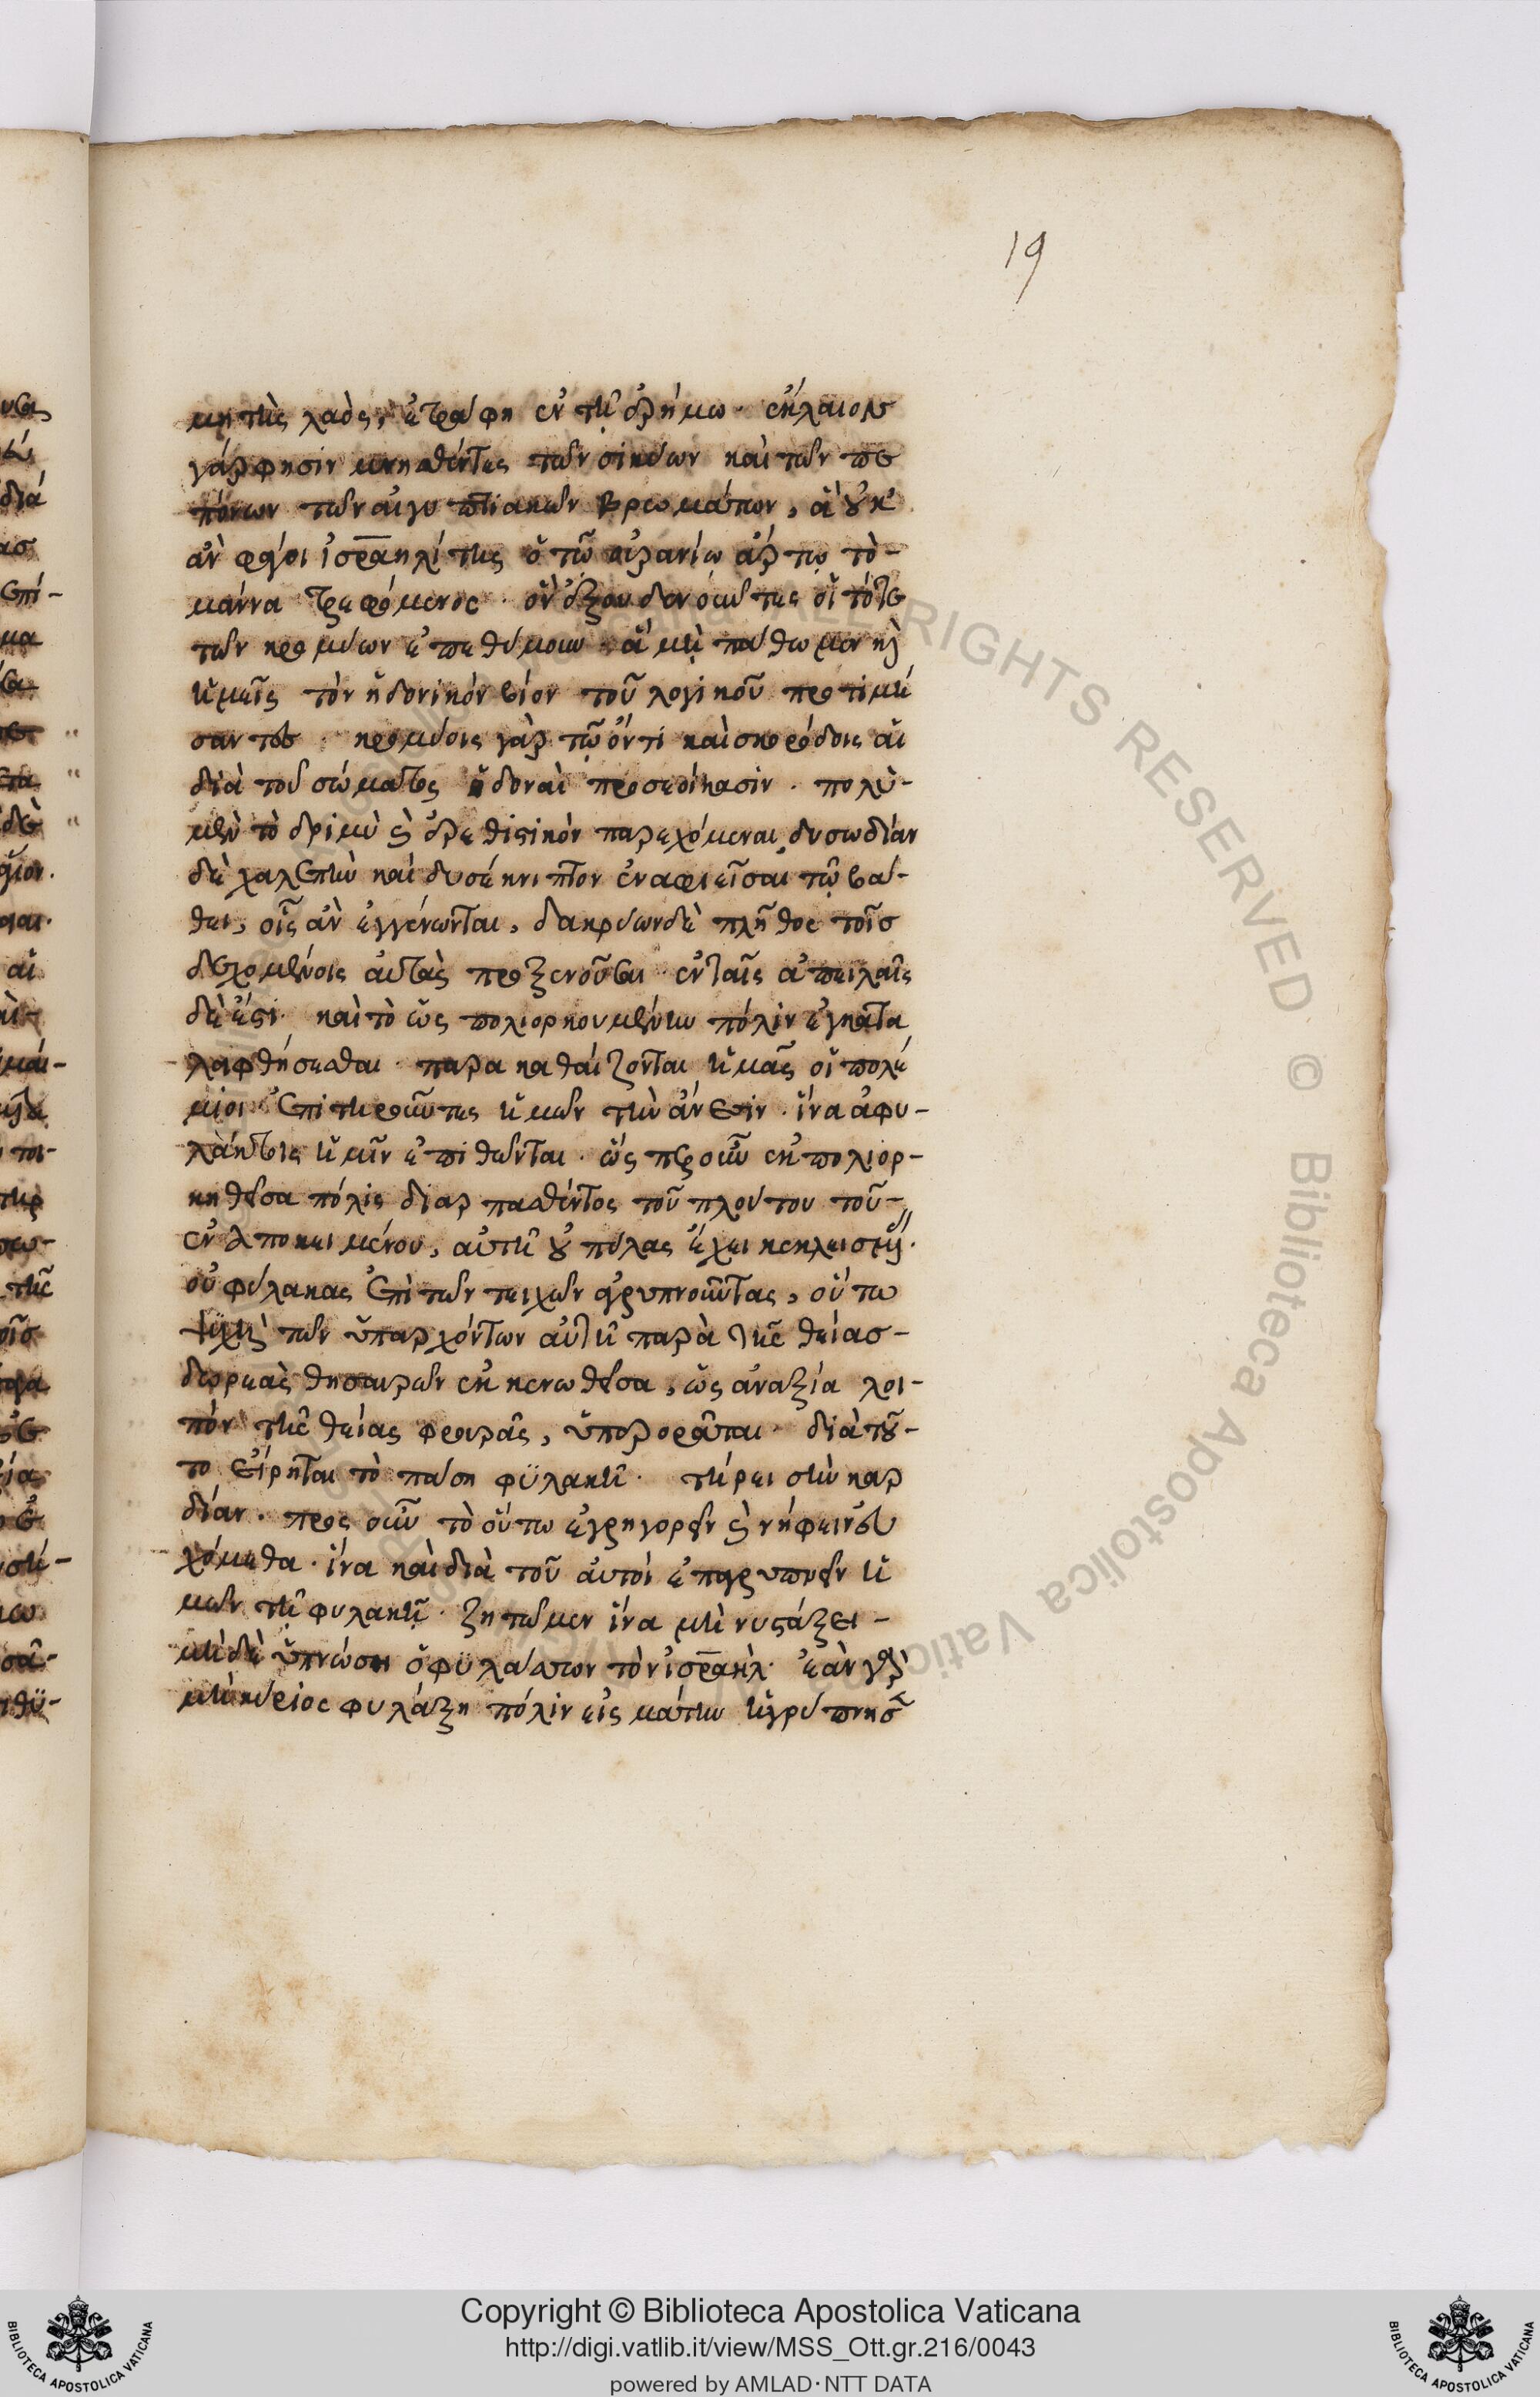 19
μητὶς λαὸς, ἐτράφη ἐν τῆ ἐρήμω. ἔκλαιον
γάρ φησιν μνησθέντες τῶν σικύων καὶ τῶν πε
πόνων τῶν αἰγυπτιακῶν βρωμάτων, ἃ οὐκ
ἂν φάγοι ἰσραηλίτης ὁ τῶ οὐρανίω ἄρτω τὸ
μάννα τρεφόμενος.
τῶν κρομύων ἐπεθύμουν. ἃ μὴ πάθωμεν καὶ
ἡμεῖς τὸν ἡδονικόν βίον τοῦ λογικοῦ προτιμή
σαντες. κρομύοις γὰρ τῶ ὄντι καὶ σκορόδοις αἱ
διὰ τοῦ σώματος ἡδοναὶ προσεοίκασιν. πολὺ-
μὲν τὸ δριμὺ καὶ ἐρεθιστικὸν παρεχόμεναι, δυσωδίαν
δὲ χαλεπὴν καὶ δυσέκνιπτον ἐναφιεῖσαι τῶ βά-
θει, οἷς ἂν ἐγγένωνται, δακρύων δὲ πλῆθος τοῖς
δεχομένοις αὐτὰς προξενοῦσαι. ἐν ταῖς ἀπειλαῖς
δὲ ἐστί. καὶ τὸ ὡς πολιορκουμένην πόλιν ἐγκατα
λειφθήσεσθαι. παρακαθέζονται ἡμᾶς οἱ πολέ
μιοι ἐπιτηροῦντες ἡμῶν τὴν ἄνεσιν. ἵνα ἀφυ-
λάκτοις ἡμῖν ἐπιθῶνται. ὥσπερ οὖν ἐκπολιορ-
κηθεῖσα πόλις διαρπασθέντος τοῦ πλούτου τοῦ-
ἐναποκειμένου, αὐτὴ οὐ πύλας ἔχει κεκλεισμένας.
οὐ φύλακας ἐπὶ τῶν τειχῶν ἀγρυπνοῦντας, οὕτω
ψυχὴ τῶν ὑπαρχόντων αὐτῆ παρὰ τῆς θείας-
δωρεᾶς θησαυρῶν ἐκκενωθεῖσα, ὡς ἀναξία λοι-
πόν τῆς θείας φρουρᾶς, ὑπερορᾶται. διὰ τοῦ-
το εἴρηται τὸ πάση φϋλακῆ. τήρει σὴν καρ
δίαν. πρὸς οὖν τὸ οὕτω ἐγρηγορεῖν καὶ νήφειν εὐ
χόμεθα. ἵνα καὶ διὰ τοῦ αὐτοί ἐπαγρυπνεῖν ἡ
μῶν τῆ φυλακῆ. ζητῶμεν ἵνα μὴ νυστάξει-
μὴ δὲ ὑπνώσει ὁ φϋλάσσων τὸν ἰσραήλ. ἐὰν γὰρ
μὴ κύριος φυλάξη πόλιν εἰς μάτην ἠγρύπνησ
Copyright © Biblioteca Apostolica Vaticana
http://digi.vatlib.it/view/MSS_Ott.gr.216/0043
powered by AMLAD·NTT DATA